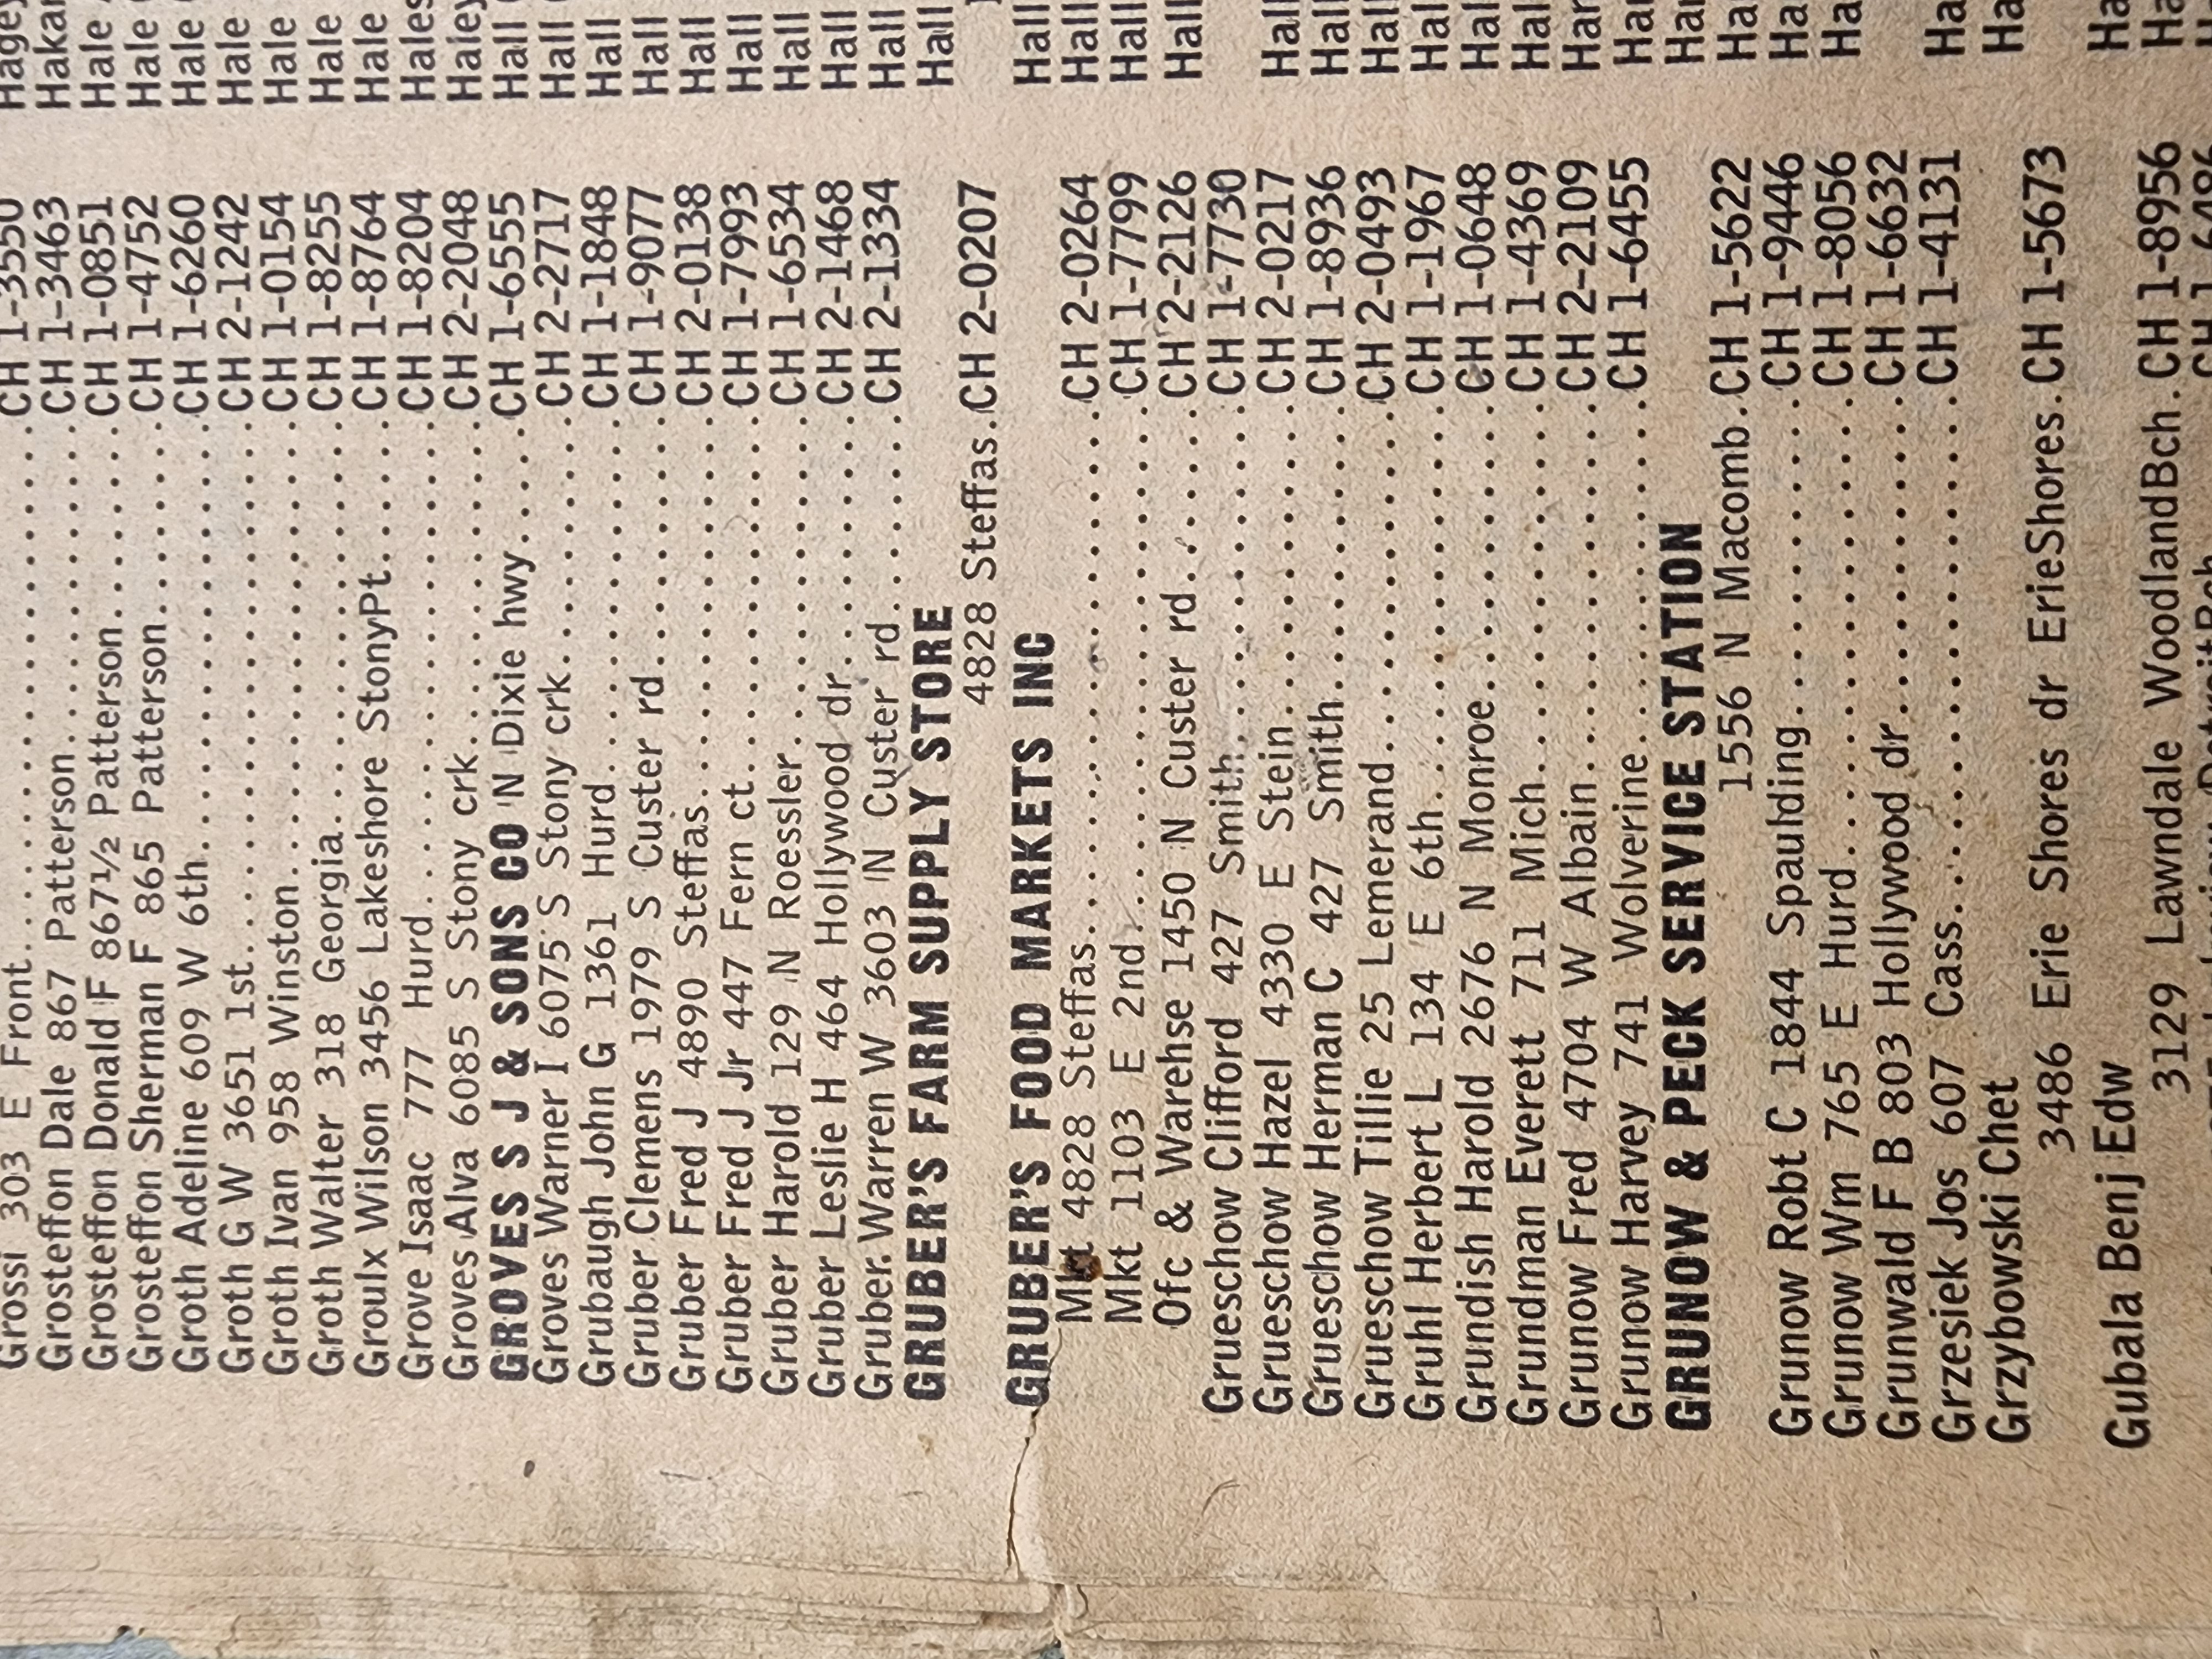 Grossi 303 E Front..........CH 1-3550
Grosteffon Dale 867 Patterson..........CH 1-3463
Grosteffon Donald F 867½ Patterson..........CH 1-0851
Grosteffon Sherman F 865 Patterson..........CH 1-4752
Groth Adeline 609 W 6th..........CH 1-6260
Groth G W 3651 1st..........CH 2-1242
Groth Ivan 958 Winston..........CH 1-0154
Groth Walter 318 Georgia..........CH 1-8255
Groulx Wilson 3456 Lakeshore StonyPt..........CH 1-8764
Grove Isaac 777 Hurd..........CH 1-8204
Groves Alva 6085 S Stony crk..........CH 2-2048
GROVES S J & SONS CO N Dixie hwy.....CH 1-6555
Groves Warner I 6075 S Stony crk..........CH 2-2717
Grubaugh John G 1361 Hurd..........CH 1-1848
Gruber Clemens 1979 S Custer rd..........CH 1-9077
Gruber Fred J 4890 Steffas..........CH 2-0138
Gruber Fred J Jr 447 Fern ct..........CH 1-7993
Gruber Harold 129 N Roessler..........CH 1-6534
Gruber Leslie H 464 Hollywood dr..........CH 2-1468
Gruber Warren W 3603 N Custer rd.......CH 2-1334
GRUBER'S FARM SUPPLY STORE
4828 Steffas.CH 2-0207
GRUBER'S FOOD MARKETS INC
Mkt 4828 Steffas..........CH 2-0264
Mkt 1103 E 2nd..........CH 1-7799
Ofc & Warehse 1450 N Custer rd......CH 2-2126
Grueschow Clifford 427 Smith..........CH 1-7730
Grueschow Hazel 4330 E Stein..........CH 2-0217
Grueschow Herman C 427 Smith..........CH 1-8936
Grueschow Tillie 25 Lemerand..........CH 2-0493
Gruhl Herbert L 134 E 6th..........CH 1-1967
Grundish Harold 2676 N Monroe..........CH 1-0648
Grundman Everett 711 Mich..........CH 1-4369
Grunow Fred 4704 W Albain..........CH 2-2109
Grunow Harvey 741 Wolverine..........CH 1-6455
GRUNOW & PECK SERVICE STATION
1556 N Macomb.CH 1-5622
Grunow Robt C 1844 Spaulding..........CH 1-9446
Grunow Wm 765 E Hurd..........CH 1-8056
Grunwald F B 803 Hollywood dr..........CH 1-6632
Grzesiek Jos 607 Cass..........CH 1-4131
Grzybowski Chet
3486 Erie Shores dr ErieShores.CH 1-5673
Gubala Benj Edw
3129 Lawndale WoodlandBch.CH 1-8956
Hale
Hale
Hale
Hale
Hale
Hale
Hale
Hales
Haley
Hall
Hall
Hall
Hall
Hall
Hall
Hall
Hall
Hall
Hall
Hall
Hall
Hall
Hall
Hall
Hall